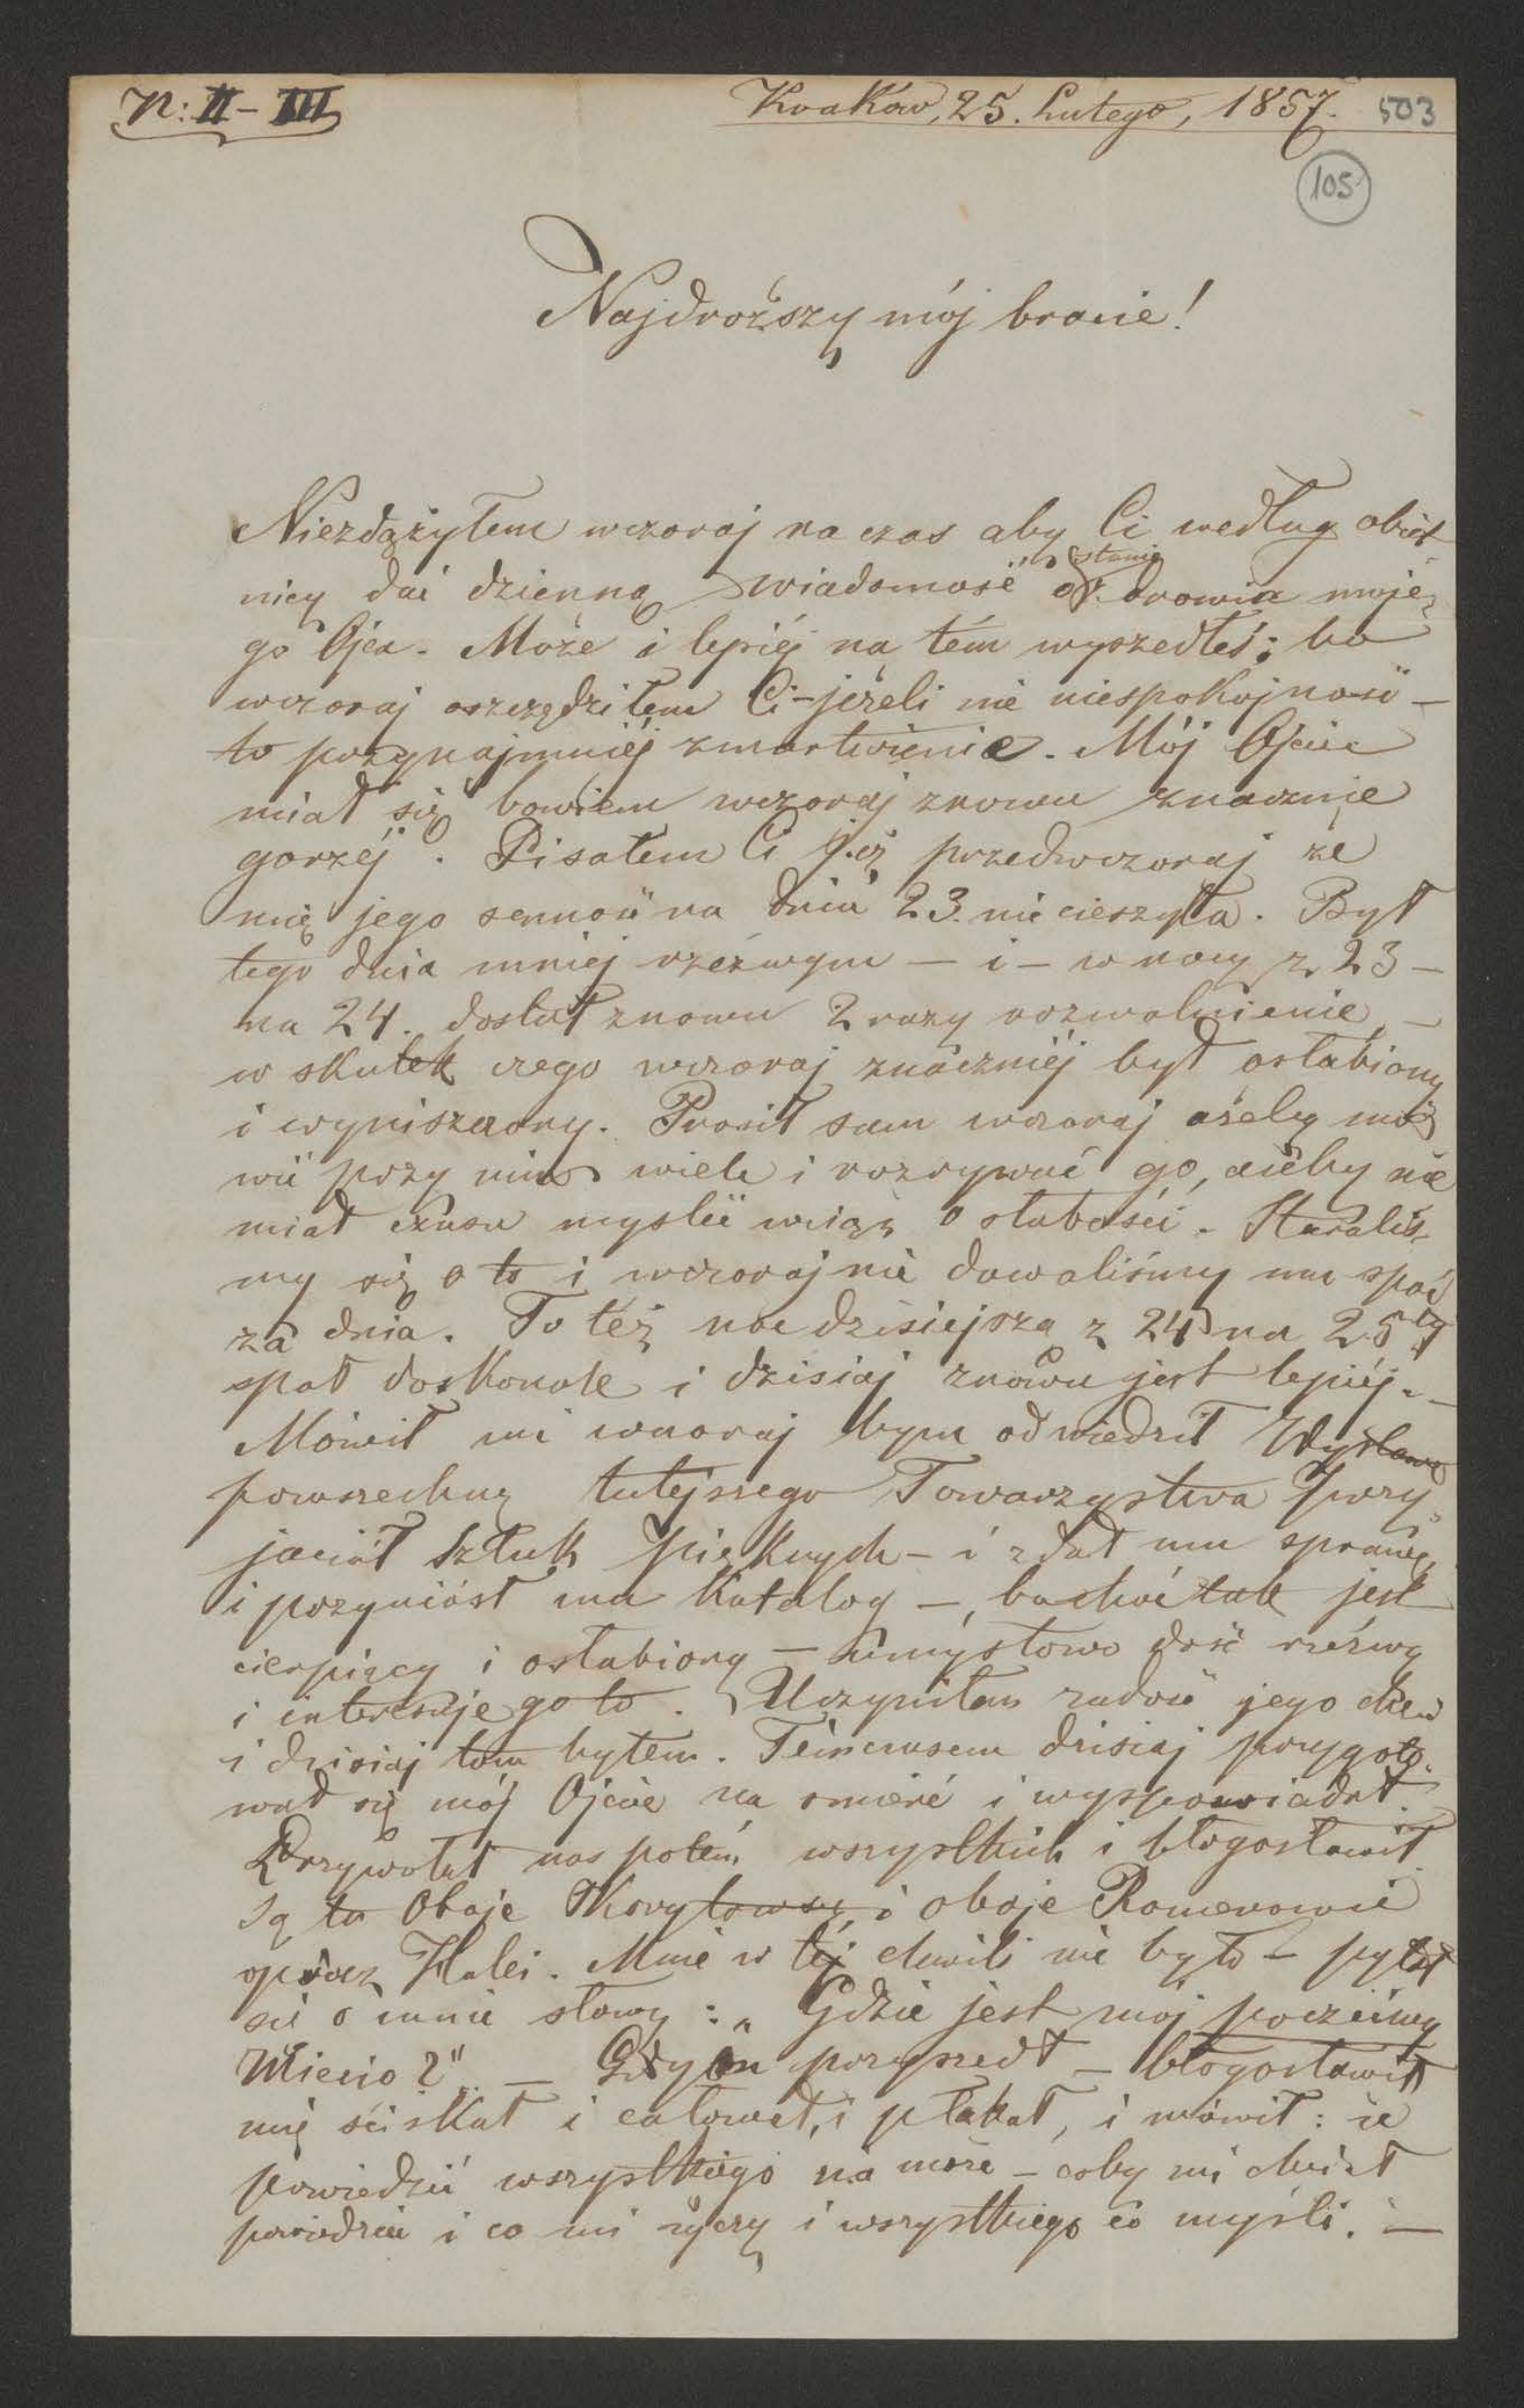 N: II – III
Kraków, 25. Lutego, 1857. 503
105
Najdroższy mój bracie!
Niezdążyłem wczoraj na czas aby Ci według obiet-
nicy dać dzienną wiadomość o stanie zdrowia moje-
go Ojca. Może i lepiéj na tém wyszedłeś; bo
wczoraj oszczędziłem Ci – jeżeli nie niespokojność –
to przynajmniéj zmartwienie. Mój Ojciec
miał się bowiem wczoraj znowu znacznie
gorzéj. Pisałem Ci już przedwczoraj że
mię jego senność na dniu 23. nie cieszyła. Był
tego dnia mniej rzéźwym – i – w nocy z 23 –
na 24. dostał znowu 2 razy rozwolnienie –
w skutek czego wczoraj znaczniéj był osłabiony
i wyniszczony. Prosił sam wczoraj ażeby mó-
wić przy nim wiele i rozrywać go, ażeby nie
miał czasu myslić wciąż o słabości. Staraliś-
my się o to i wczoraj nie dawaliśmy mu spać
za dnia. To téż noc dzisiejszą z 24 na 25ty
spał doskonale i dzisiaj znowu jest lepiéj. –
Mówił mi wczoraj bym odwiedził Wystawę
powszechną tutejszego Towarzystwa Przy-
jaciół Sztuk pięknych – i zdał mu sprawę
i przyniósł mu Katalog –, bo choć tak jest
cierpiący i osłabiony – umysłowo dość rzéźwy
i interesuje go to. Uczyniłem zadość jego chęci
i dzisiaj tam byłem. Témczasem dzisiaj przygoto-
wał się mój Ojciec na smierć i wyspowiadał.
Przywołał nas potém wszystkich i błogosławił.
Są tu Oboje Skorytowscy i oboje Romerowie
oprócz Halci. Mnie w téj chwili nie było – pytał
się o mnie słowy: „Gdzie jest mój poczciwy
Miecio?" – Gdym przyszedł – błogosławił
mię ściskał i całował, i płakał, i mówił: że
powiedzieć wszystkiego nie może – coby mi chciał
powiedzieć i co mi życzy i wszystkiego co myśli. –